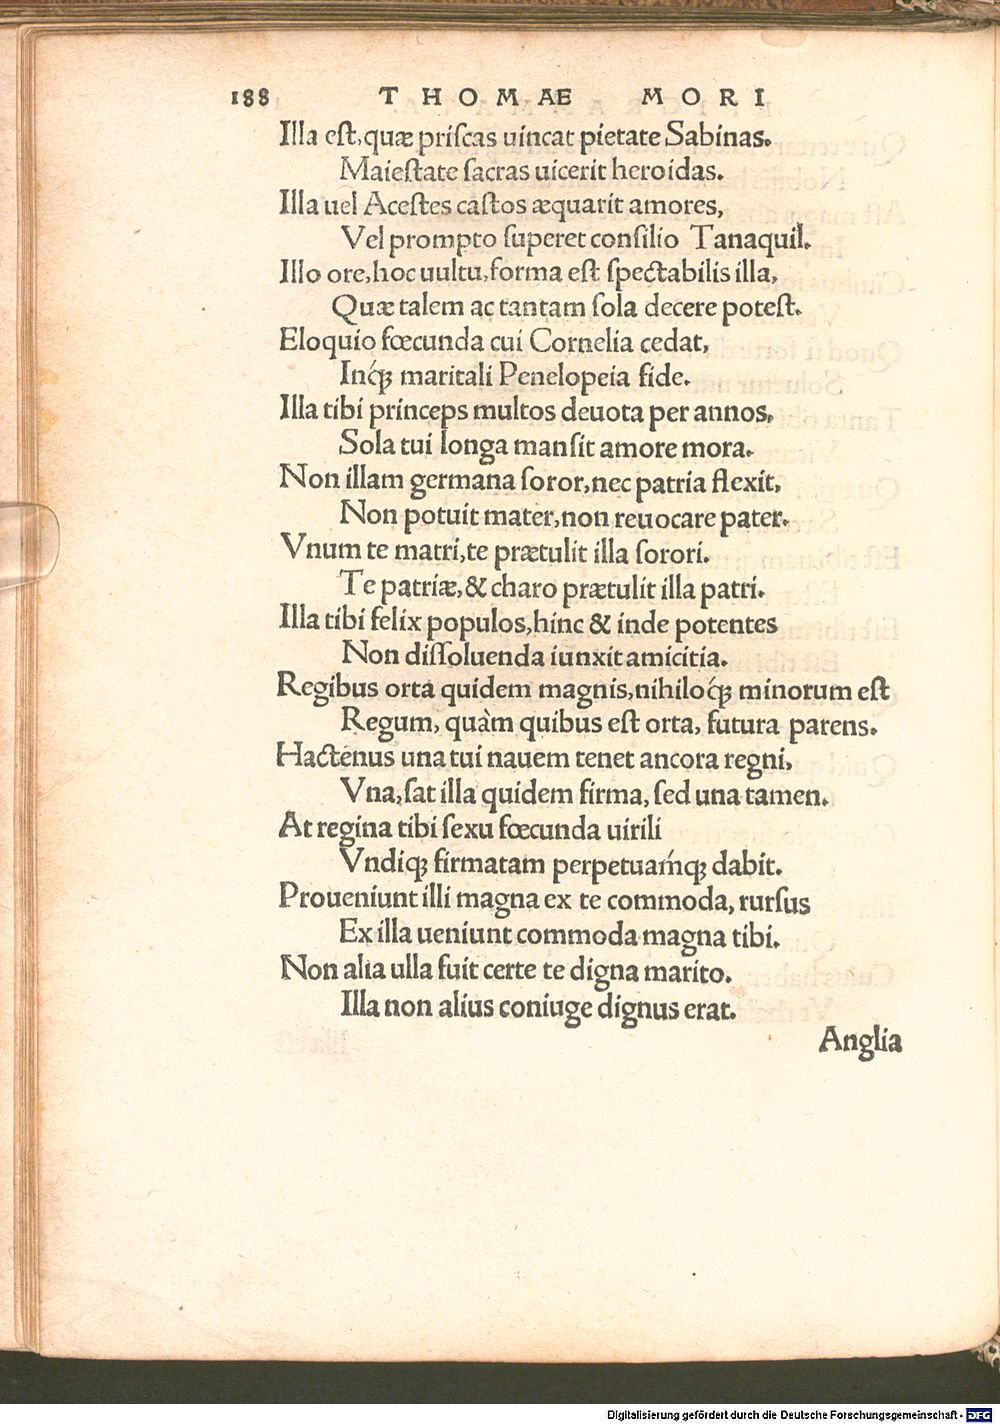 188 THOMAE MORI
Illa eſt,quæ priſcas uincat pietate Sabinas.
Maieſtate ſacras uicerit heroidas.
Illa uel Aceſtes caſtos æquarit amores,
Vel prompto ſuperet conſilio Tanaquil.
Illo ore,hoc uultu,forma eſt ſpectabilis illa,
Quæ talem ac tantam ſola decere poteſt.
Eloquio fœcunda cui Cornelia cedat,
Inq́ꝫ maritali Penelopeia fide.
Illa tibi princeps multos deuota per annos,
Sola tui longa manſit amore mora.
Non illam germana ſoror,nec patria flexit,
Non potuit mater,non reuocare pater.
Vnum te matri,te prætulit illa ſorori.
Te patriæ,& charo prætulit illa patri.
Illa tibi felix populos,hinc & inde potentes
Non diſſoluenda iunxit amicitia.
Regibus orta quidem magnis,nihiloq́ꝫ minorum eſt
Regum, quàm quibus eſt orta, futura parens.
Hactenus una tui nauem tenet ancora regni,
Vna,ſat illa quidem firma, ſed una tamen.
At regina tibi ſexu fœcunda uirili
Vndiqꝫ firmatam perpetuaḿqꝫ dabit.
Proueniunt illi magna ex te commoda, rurſus
Ex illa ueniunt commoda magna tibi.
Non alia ulla fuit certe te digna marito.
Illa non alius coniuge dignus erat.
Anglia
Digitalisierung gefördert durch die Deutsche Forschungsgemeinschaft - DFG